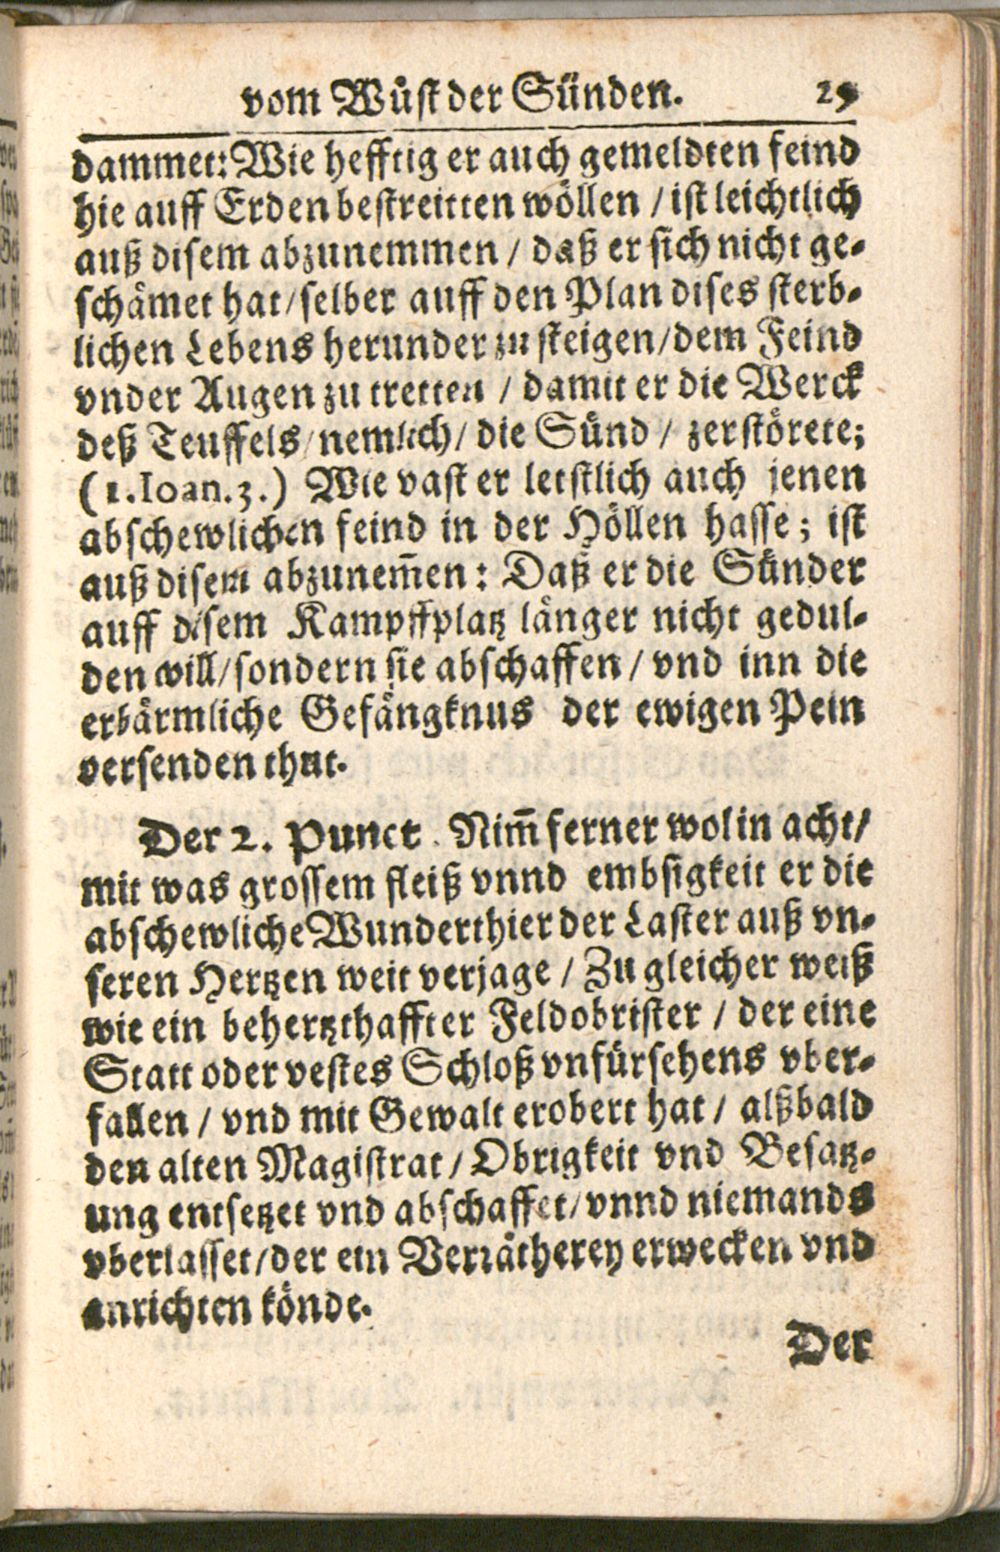 vom Wuͤst der Sünden. 29
dammet: Wie hefftig er auch gemeldten feind
hie auff Erden bestreitten woͤllen / ist leichtlich
auß disem abzunemmen / daß er sich nicht ge-
schaͤmet hat / selber auff den Plan dises sterb-
lichen Lebens herunder zu steigen / dem Feind
vnder Augen zu tretten / damit er die Werck
deß Teuffels / nemlich / die Sünd / zerstoͤrete;
(1. Ioan. 3.) Wie vast er letstlich auch jenen
abschewlichen feind in der Hoͤllen hasse; ist
auß disem abzunem̃en: Daß er die Sünder
auff disem Kampffplatz laͤnger nicht gedul-
den will / sondern sie abschaffen / vnd inn die
erbaͤrmliche Gefaͤngknus der ewigen Pein
versenden thut.
Der 2. Punct. Nim̃ ferner wol in acht /
mit was grossem fleiß vnnd embsigkeit er die
abschewliche Wunderthier der Laster auß vn-
seren Hertzen weit verjage / Zu gleicher weiß
wie ein behertzthaffter Feldobrister / der eine
Statt oder vestes Schloß vnfürsehens vber-
fallen / vnd mit Gewalt erobert hat / alßbald
den alten Magistrat / Obrigkeit vnd Besatz-
ung entsetzet vnd abschaffet / vnnd niemands
vberlasset / der ein Verraͤtherey erwecken vnd
anrichten koͤnde.
Der